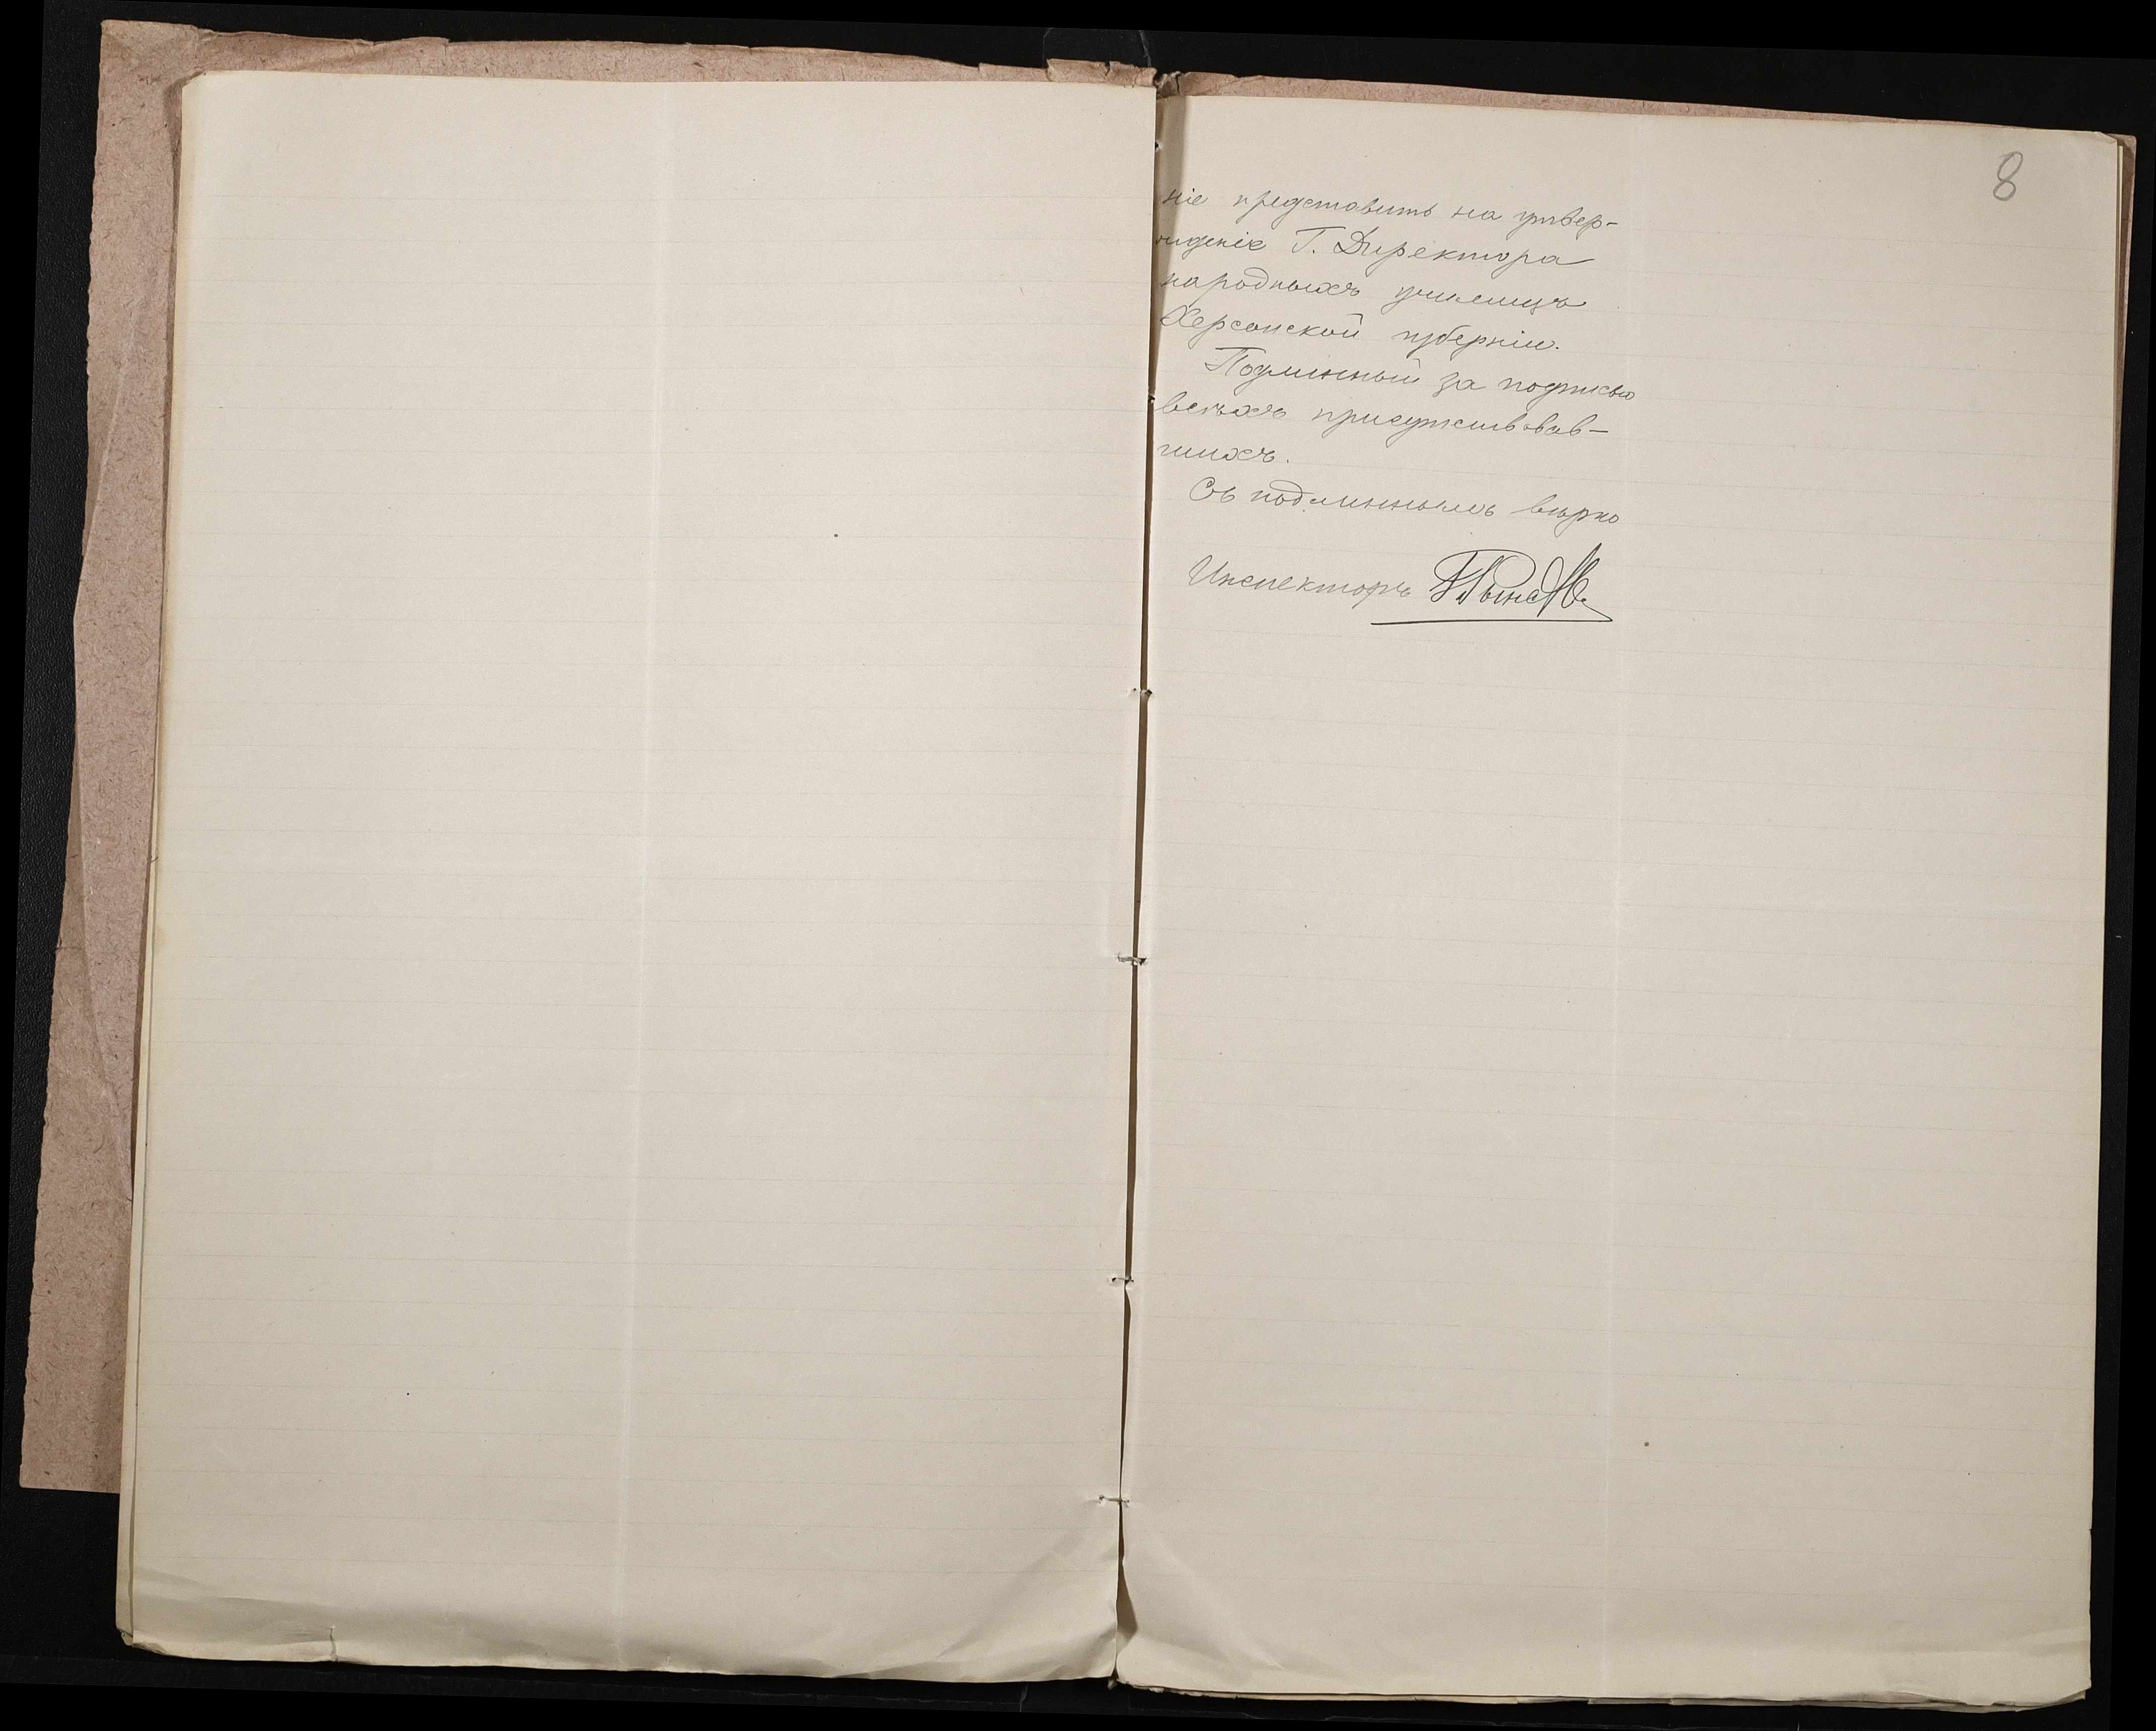 8
ніе представить на утвер-
жденіе Г. Директора
народныхъ училищъ
Херсонской губерніи.
Подлинный за подписью
всѣхъ присутствовав-
шихъ.
Съ подлиннымъ вѣрно
Инспекторъ